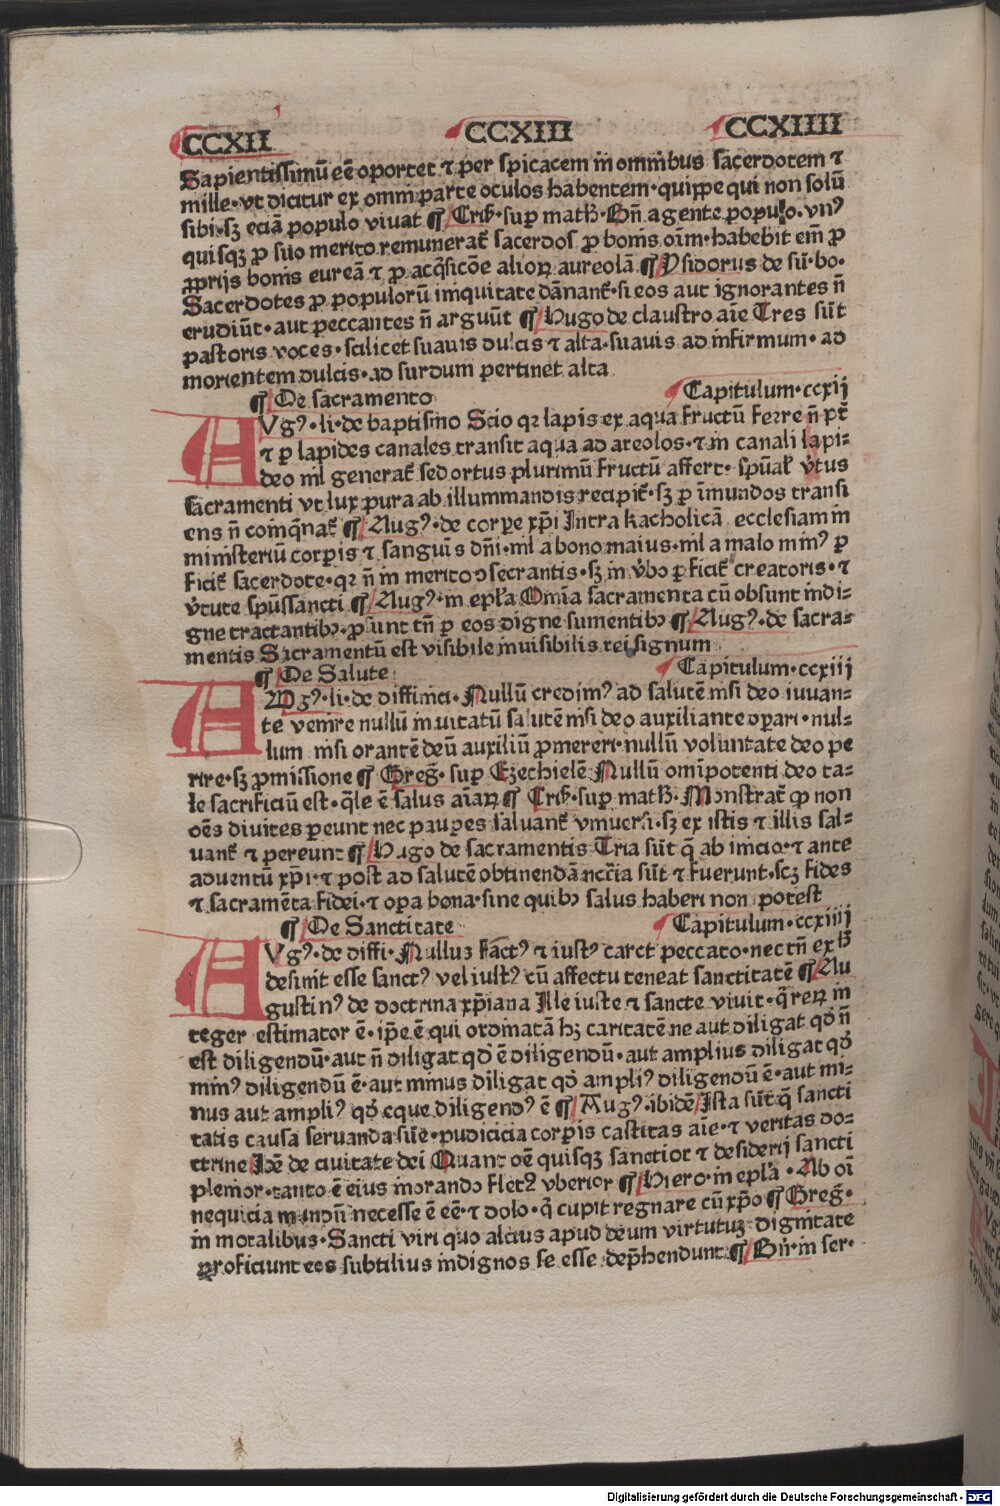 CCXII CCXIII CCXIIII
Sapientissimū eē oportet ⁊ per spicacem in omnibus sacerdotem ⁊
mille·vt dicitur ex omni parte oculos habentem·quippe qui non solū
sibi·sꝫ eciā populo viuat ¶ Crisꝰ·sup math̄·Bn̄ agente populo·vnꝰ
quisqꝫ ꝓ suo merito remunerat᷒ sacerdos ꝓ bonis oīm·habebit em̄ ꝓ
ꝓprijs bonis eureā ⁊ ꝓ acq̄sicōe alioꝝ aureolā ¶ Ysidorus de sūͫ·bo·
Sacerdotes ꝓ populorū iniquitate dānant᷒·si eos aut ignorantes n̄
erudiūt·aut peccantes n̄ arguūt ¶ Hugo de claustro aīe Tres sūt
pastoris voces·scilicet suauis dulcis ⁊ alta·suauis ad infirmum·ad
morientem dulcis·ad surdum pertinet alta
¶ De sacramento Capitulum·ccxij
AVgꝰ·li·de baptismo Scio qꝛ lapis ex aqua fructū ferre n̄ pt̄
⁊ ꝑ lapides canales transit aqua ad areolos·⁊ in canali lapi-
deo nil generat᷒ sed ortus plurimū fructū affert·spūal᷒ v̓tus
sacramenti vt lux pura ab illuminandis recipit᷒·sꝫ ꝑ īmundos transi
ens n̄ coinq̄nat᷒ ¶ Augꝰ·de corpe xp̄i Intra kacholicā ecclesiam in
ministeriū corpis ⁊ sanguis dn̄i·nil a bono maius·nil a malo minꝰ ꝑ
ficit᷒ sacerdote·qꝛ n̄ in merito ↄsecrantis·sꝫ in v̓bo ꝑficit᷒ creatoris·⁊
v̓tute spūssancti ¶ Augꝰ·in epl̄a Omnia sacramenta cū obsunt indi-
gne tractantibꝫ·ꝓsunt tn̄ ꝑ eos digne sumentibꝫ ¶ Augꝰ·de sacra-
mentis Sacramentū est visibile inuisibilis rei signum
¶ De Salute Capitulum·ccxiij
AVgꝰ·li·de diffinici·Nullū credimꝰ ad salutē nisi deo iuuan-
te venire nullū inuitatū salutē nisi deo auxiliante opari·nul-
lum nisi orantē deū auxiliū ꝓmereri·nullū voluntate deo pe
rire·sꝫ ꝓmissione ¶ Greg̃·sup Ezechielē Nullū omīpotenti deo ta-
le sacrificiū est·q̄le ē salus aīaꝝ ¶ Crisꝰ·sup math̄·Monstrat᷒ ꝙ non
oēs diuites pereunt nec paupes saluant᷒ vniuersi·sꝫ ex istis ⁊ illis sal-
uant᷒ ⁊ pereunt ¶ Hugo de sacramentis Tria sūt q̄ ab inicio·⁊ ante
aduentū xp̄i·⁊ post ad salutē obtinendā nccīa sūt ⁊ fuerunt·scꝫ fides
⁊ sacramēta fidei·⁊ opa bona·sine quibꝫ salus haberi non potest
¶ De Sanctitate Capitulum·ccxiiij
AVgꝰ·de diffi·Nullus sāctꝰ ⁊ iustꝰ caret peccato·nec tn̄ ex h̄
desinit esse sanctꝰ vel iustꝰ cū affectu teneat sanctitatē ¶ Au
gustinꝰ de doctrina xp̄iana Ille iuste ⁊ sancte viuit·q̄ reꝝ in
teger estimator ē·ip̄e ē qui ordinatā hꝫ caritatē ne aut diligat qd̓ n̄
est diligendū·aut n̄ diligat qd̓ ē diligendū·aut amplius diligat qd̓
minꝰ diligendū ē·aut minus diligat qd̓ ampliꝰ diligendū ē·aut mi-
nus aut ampliꝰ qd̓ eque diligendꝰ ē ¶ Augꝰ·ibidē Ista sūt q̄ sancti
tatis causa seruanda sūt·pudicicia corpis castitas aīe·⁊ veritas do-
ctrine Idē de ciuitate dei Quant oē quisqꝫ sanctior ⁊ desiderij sancti
plenior·tanto ē eius in orando fletꝰ vberior ¶ Hiero·in epl̄a·Ab oī
nequicia mundū necesse ē eē·⁊ dolo·q̄ cupit regnare cū xp̄o ¶ Greg̃·
in moralibus·Sancti viri quo alcius apud deum virtutuꝫ dignitate
ꝓficiunt eos subtilius indignos se esse dep̄hendunt ¶ Bn̄·in ser·
Digitalisierung gefördert durch die Deutsche Forschungsgemeinschaft - DFG